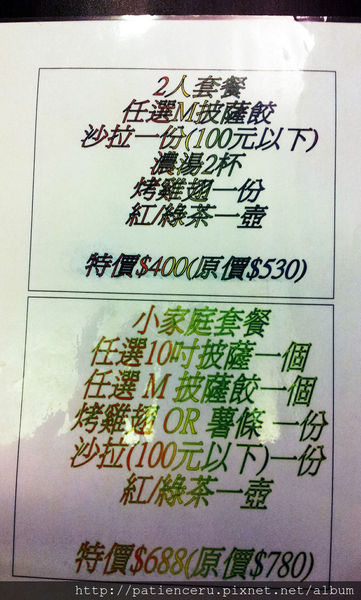 2人套餐
任選M披薩餃
沙拉一份(100元以下)
濃湯2杯
烤雞翅一份
紅/綠茶一壺
特價$400(原價$530)
小家庭套餐
任選10吋披薩一個
任選 M 披薩餃一個
烤雞翅 OR 薯條 一份
沙拉(100元以下)一份
紅/綠茶一壺
特價$688(原價$780)
http://patienceru.pixnet.net/album